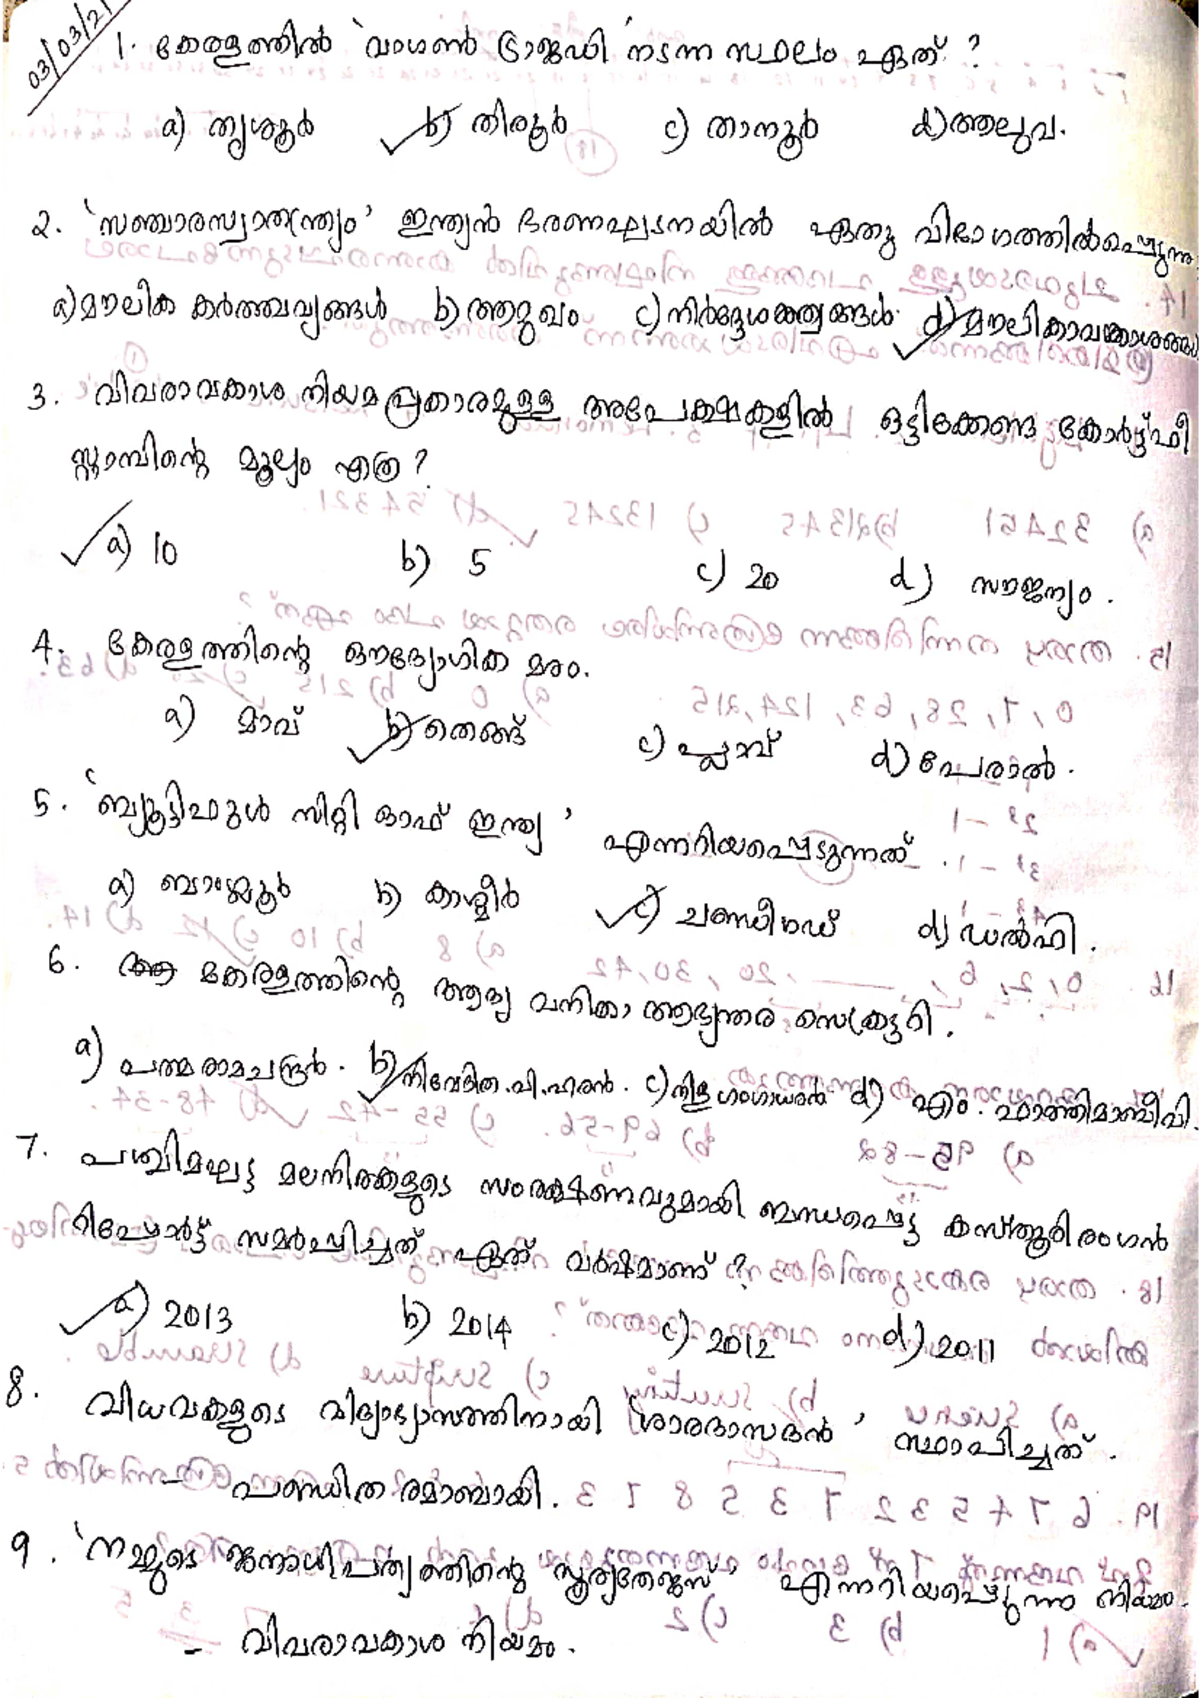 03/03/21
1. കേരളത്തിൽ 'വാഗൺ ട്രാജഡി' നടന്ന സ്ഥലം ഏത്?
a) തൃശൂർ b) തിരൂർ c) താനൂർ d) ആലുവ.
2. 'സഞ്ചാരസ്വാതന്ത്ര്യം' ഇന്ത്യൻ ഭരണഘടനയിൽ ഏതു വിഭാഗത്തിൽപ്പെടുന്നു
a) മൗലിക കർത്തവ്യങ്ങൾ b) ആമുഖം c) നിർദ്ദേശകതത്വങ്ങൾ d) മൗലികാവകാശങ്ങൾ
3. വിവരാവകാശ നിയമപ്രകാരമുള്ള അപേക്ഷകളിൽ ഒട്ടിക്കേണ്ട കോർട്ട്ഫീ
സ്റ്റാമ്പിന്റെ മൂല്യം എത്ര?
a) 10 b) 5 c) 20 d) സൗജന്യം.
4. കേരളത്തിന്റെ ഔദ്യോഗിക മരം.
a) മാവ് b) തെങ്ങ് c) പ്ലാവ് d) പേരാൽ.
5. 'ബ്യൂട്ടിഫുൾ സിറ്റി ഓഫ് ഇന്ത്യ' എന്നറിയപ്പെടുന്നത്.
a) ബാംഗ്ലൂർ b) കാശ്മീർ c) ചണ്ഡീഗഡ് d) ഡൽഹി.
6. കേരളത്തിന്റെ ആദ്യ വനിതാ ആഭ്യന്തര സെക്രട്ടറി.
a) പത്മരാമചന്ദ്രൻ. b) നിവേദിത.പി.ഹരൻ. c) നിള ഗംഗാധരൻ d) എം. ഫാത്തിമാബീവി.
7. പശ്ചിമഘട്ട മലനിരകളുടെ സംരക്ഷണവുമായി ബന്ധപ്പെട്ട കസ്തൂരിരംഗൻ
റിപ്പോർട്ട് സമർപ്പിച്ചത് ഏത് വർഷമാണ്?
a) 2013 b) 2014 c) 2012 d) 2011
8. വിധവകളുടെ വിദ്യാഭ്യാസത്തിനായി 'ശാരദാസദൻ' സ്ഥാപിച്ചത്.
- പണ്ഡിത രമാബായി.
9. 'നമ്മുടെ ജനാധിപത്യത്തിന്റെ സൂര്യതേജസ്' എന്നറിയപ്പെടുന്ന നിയമം.
- വിവരാവകാശ നിയമം.